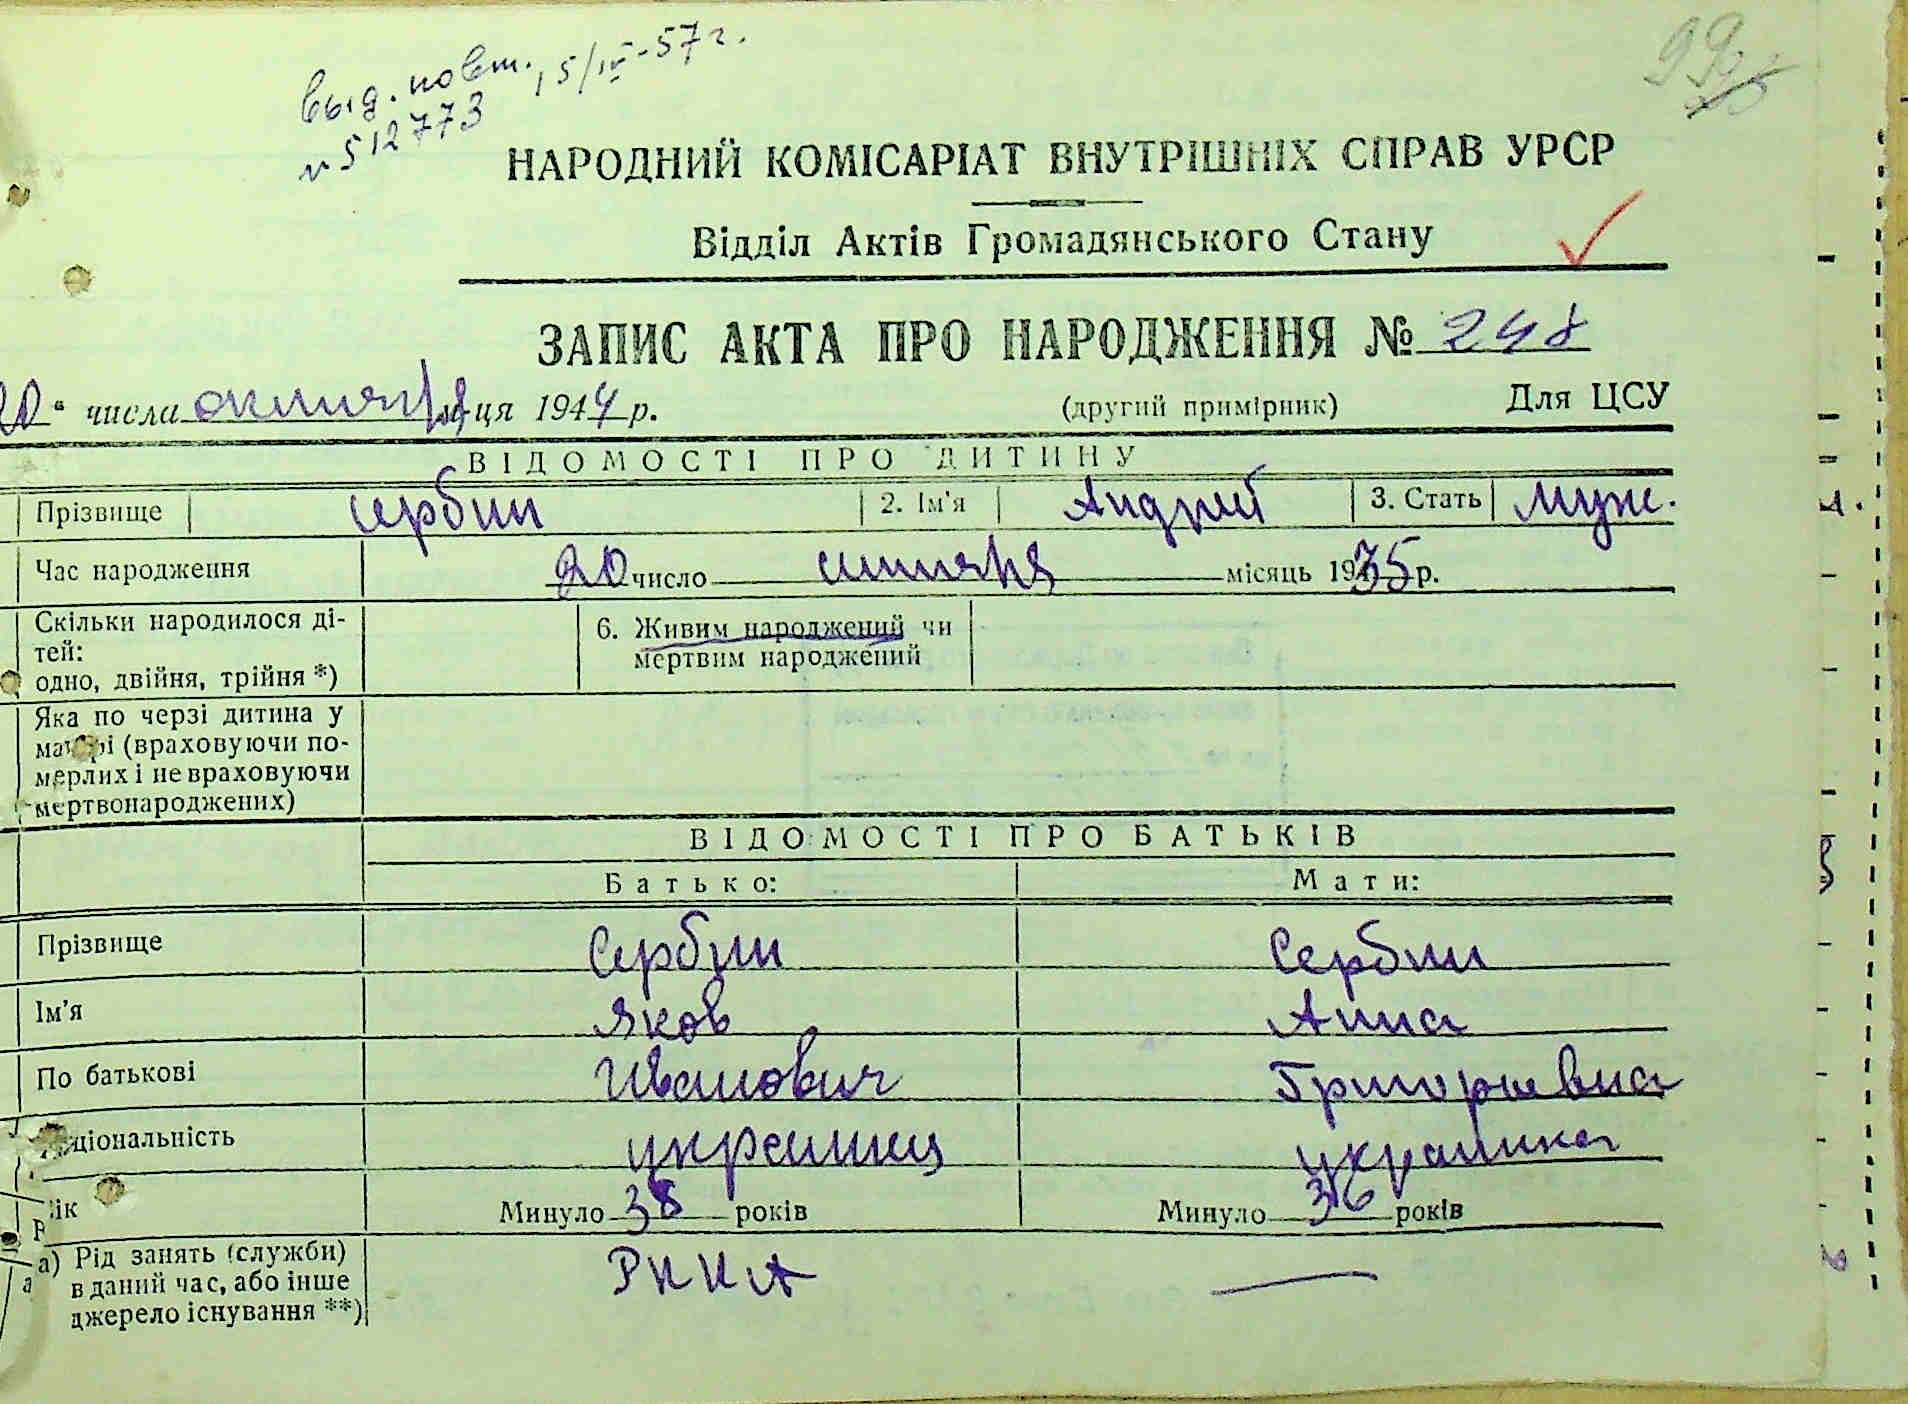 выд. повт. 15/IV-57 г.
№ 512773
99
НАРОДНИЙ КОМІСАРІАТ ВНУТРІШНІХ СПРАВ УРСР
Відділ Актів Громадянського Стану
ЗАПИС АКТА ПРО НАРОДЖЕННЯ № 248
20 " числа октября м-ця 1944 р. (другий примірник) Для ЦСУ
ВІДОМОСТІ ПРО ДИТИНУ
Прізвище Сербин 2. Ім'я Андрей 3. Стать муж.
Час народження 20 число октября місяць 1935 р.
Скільки народилося ді-
тей:
одно, двійня, трійня *)
6. Живим народжений чи
мертвим народжений
Яка по черзі дитина у
матері (враховуючи по-
мерлих і не враховуючи
мертвонароджених)
ВІДОМОСТІ ПРО БАТЬКІВ
Батько: Мати:
Прізвище Сербин Сербин
Ім'я Яков Анна
По батькові Иванович Григорьевна
Національність украинец украинка
Вік Минуло 38 років Минуло 36 років
а) Рід занять (служби)
в даний час, або інше
джерело існування **)
РККА —